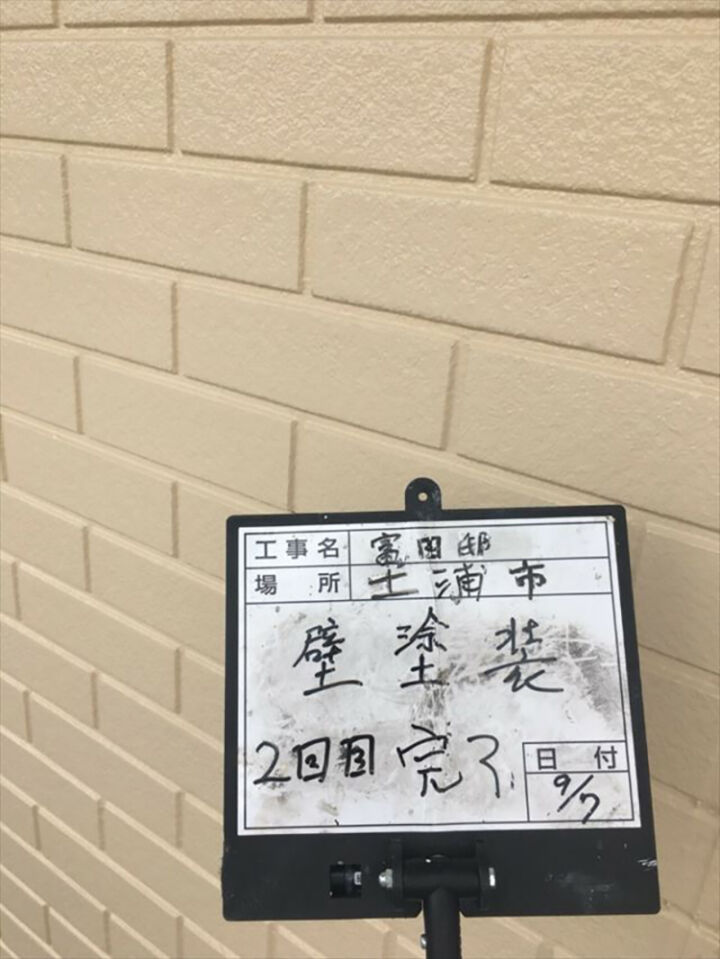 工事名 富田邸
場所 土浦市
壁塗装
2回目完了
日付
9/7